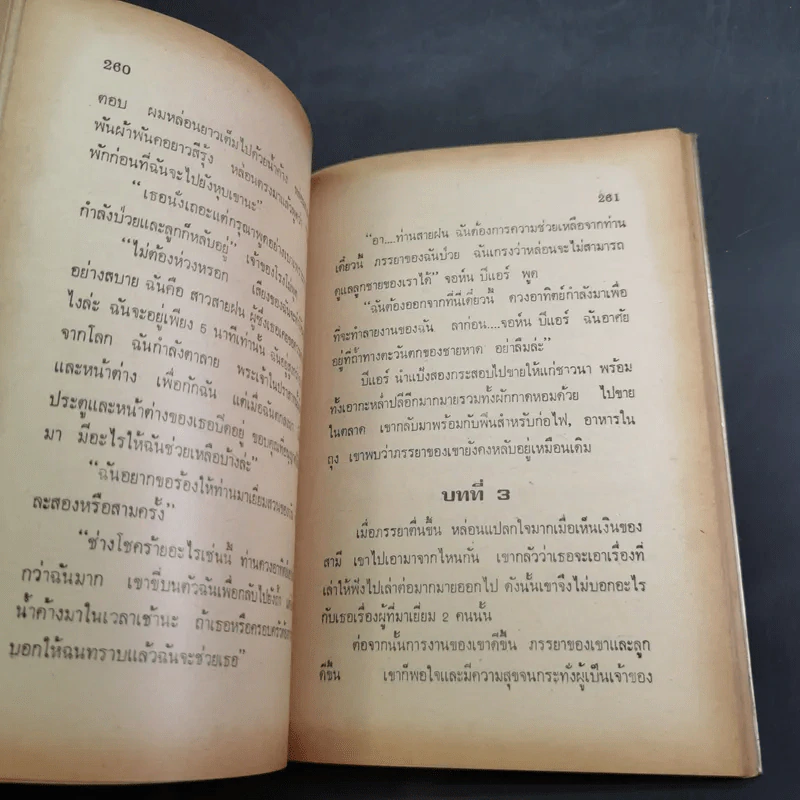 260
ตอบ ผมหล่อนยาวเต็มไปด้วยน้ำค้าง
พันผ้าพันคอยาวสีรุ้ง หล่อนตรงมาแล้ว
พักก่อนที่ฉันจะไปยังหุบเขานะ"
"เธอนั่งเถอะแต่กรุณาพูดอย่าง
กำลังป่วยและลูกก็หลับอยู่" เจ้าของโรง
"ไม่ต้องห่วงหรอก เสียงของฉัน
อย่างสบาย ฉันคือ สาวสายฝน ผู้ซึ่ง
ไงล่ะ ฉันจะอยู่เพียง 5 นาทีเท่านั้น
จากโลก ฉันกำลังตาลาย พระเจ้า
และหน้าต่าง เพื่อกักฉัน แต่เมื่อฉัน
ประตูและหน้าต่างของเธอปิดอยู่ ขอบคุณ
มา มีอะไรให้ฉันช่วยเหลือบ้างล่ะ"
"ฉันอยากขอร้องให้ท่านมาเยี่ยม
ละสองหรือสามครั้ง"
"ช่างโชคร้ายอะไรเช่นนี้ ท่านดวงอาทิตย์
กว่าฉันมาก เขาขี่บนตัวฉันเพื่อกลับไปยังถ้ำ
น้ำค้างมาในเวลาเช้านะ ถ้าเธอหรือครอบครัว
บอกให้ฉนทราบแล้วฉันจะช่วยเธอ"
261
"อา....ท่านสายฝน ฉันต้องการความช่วยเหลือจากท่าน
เดี๋ยวนี้ ภรรยาของฉันป่วย ฉันเกรงว่าหล่อนจะไม่สามารถ
ดูแลลูกชายของเราได้" จอห์น ปีแอร์ พูด
"ฉันต้องออกจากที่นี่เดี๋ยวนี้ ดวงอาทิตย์กำลังมาเพื่อ
ที่จะทำลายงานของฉัน ลาก่อน....จอห์น ปีแอร์ ฉันอาศัย
อยู่ที่ถ้ำทางตะวันตกของชายหาด อย่าลืมล่ะ"
ปีแอร์ นำแป้งสองกระสอบไปขายให้แก่ชาวนา พร้อม
ทั้งเอากะหล่ำปลีอีกมากมายรวมทั้งผักกาดหอมด้วย ไปขาย
ในตลาด เขากลับมาพร้อมกับฟืนสำหรับก่อไฟ, อาหารใน
ถุง เขาพบว่าภรรยาของเขายังคงหลับอยู่เหมือนเดิม
บทที่ 3
เมื่อภรรยาตื่นขึ้น หล่อนแปลกใจมากเมื่อเห็นเงินของ
สามี เขาไปเอามาจากไหนกัน เขากลัวว่าเธอจะเอาเรื่องที่
เล่าให้ฟังไปเล่าต่อมากมายออกไป ดังนั้นเขาจึงไม่บอกอะไร
กับเธอเรื่องผู้ที่มาเยี่ยม 2 คนนั้น
ต่อจากนั้นการงานของเขาดีขึ้น ภรรยาของเขาและลูก
ดีขึ้น เขาก็พอใจและมีความสุขจนกระทั่งผู้เป็นเจ้าของ